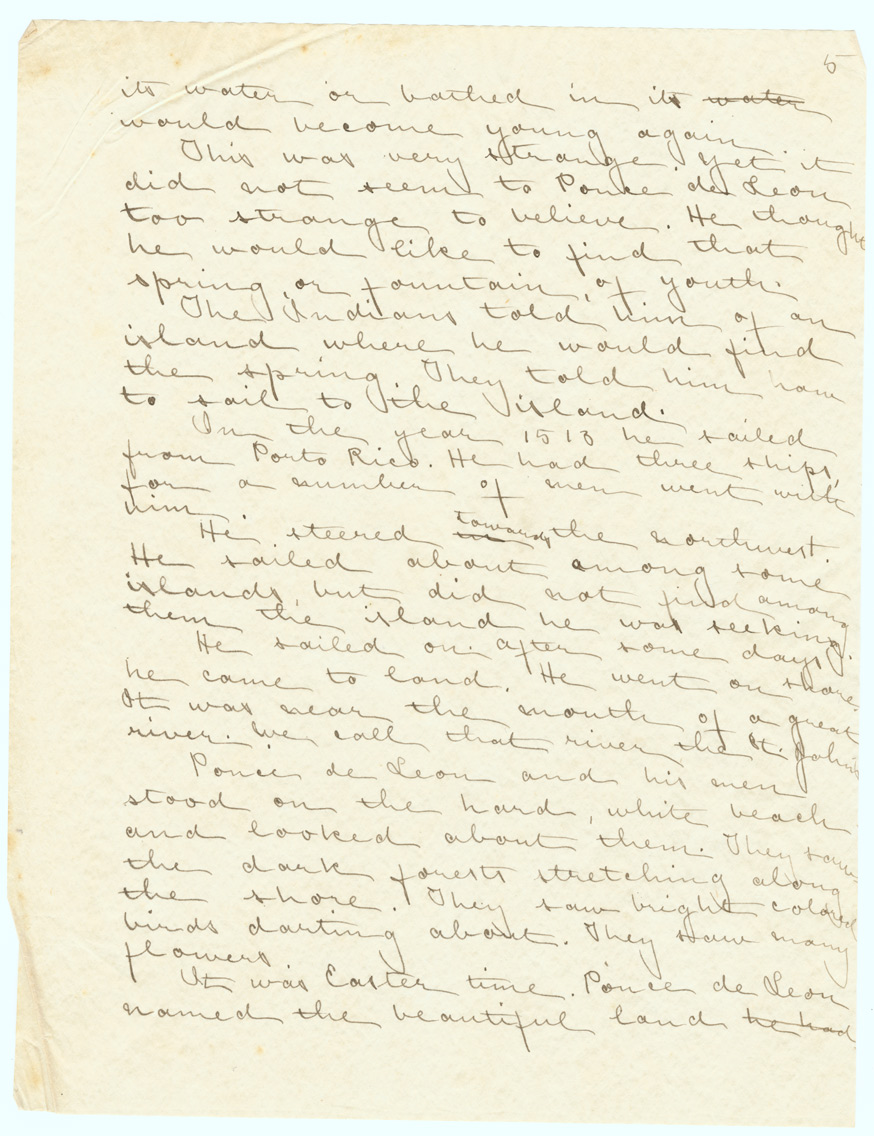 5
its water or bathed in its water
would become young again.
This was very strange yet it
did not seem to Ponce de Leon
too strange to believe. He thought
he would like to find that
spring, or fountain, of youth.
The Indians told him of an
island where he would find
the spring. They told him how
to sail to the island.
In the year 1513 he sailed
from Porto Rico. He had three ships,
for a number of men went with
him.
He steered towards the northwest.
He sailed about among some
islands, but did not find among
them the island he was seeking.
He sailed on. After some days
he came to land. He went on shore.
It was near the mouth of a great
river. We call that river the St. John's
Ponce de Leon and his men
stood on the hard, white beach
and looked about them. They saw
the dark forests stretching along
the shore. They saw bright colored
birds darting about. They saw many
flowers.
It was Easter time. Ponce de Leon
named the beautiful land he had